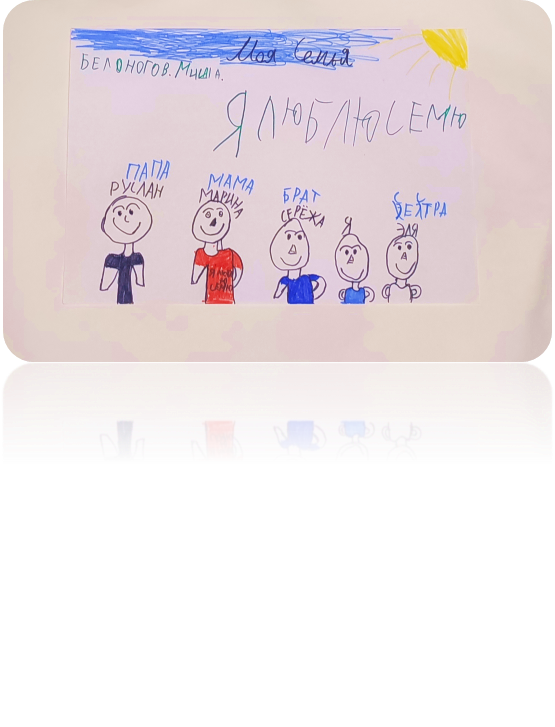 Моя Семья
БЕЛОНОГОВ. МИША.
Я ЛЮБЛЮ СЕМЮ
ПАПА
РУСЛАН
МАМА
МАРИНА
БРАТ
СЕРЁЖА
Я
СЕСТРА
ЭЛЯ